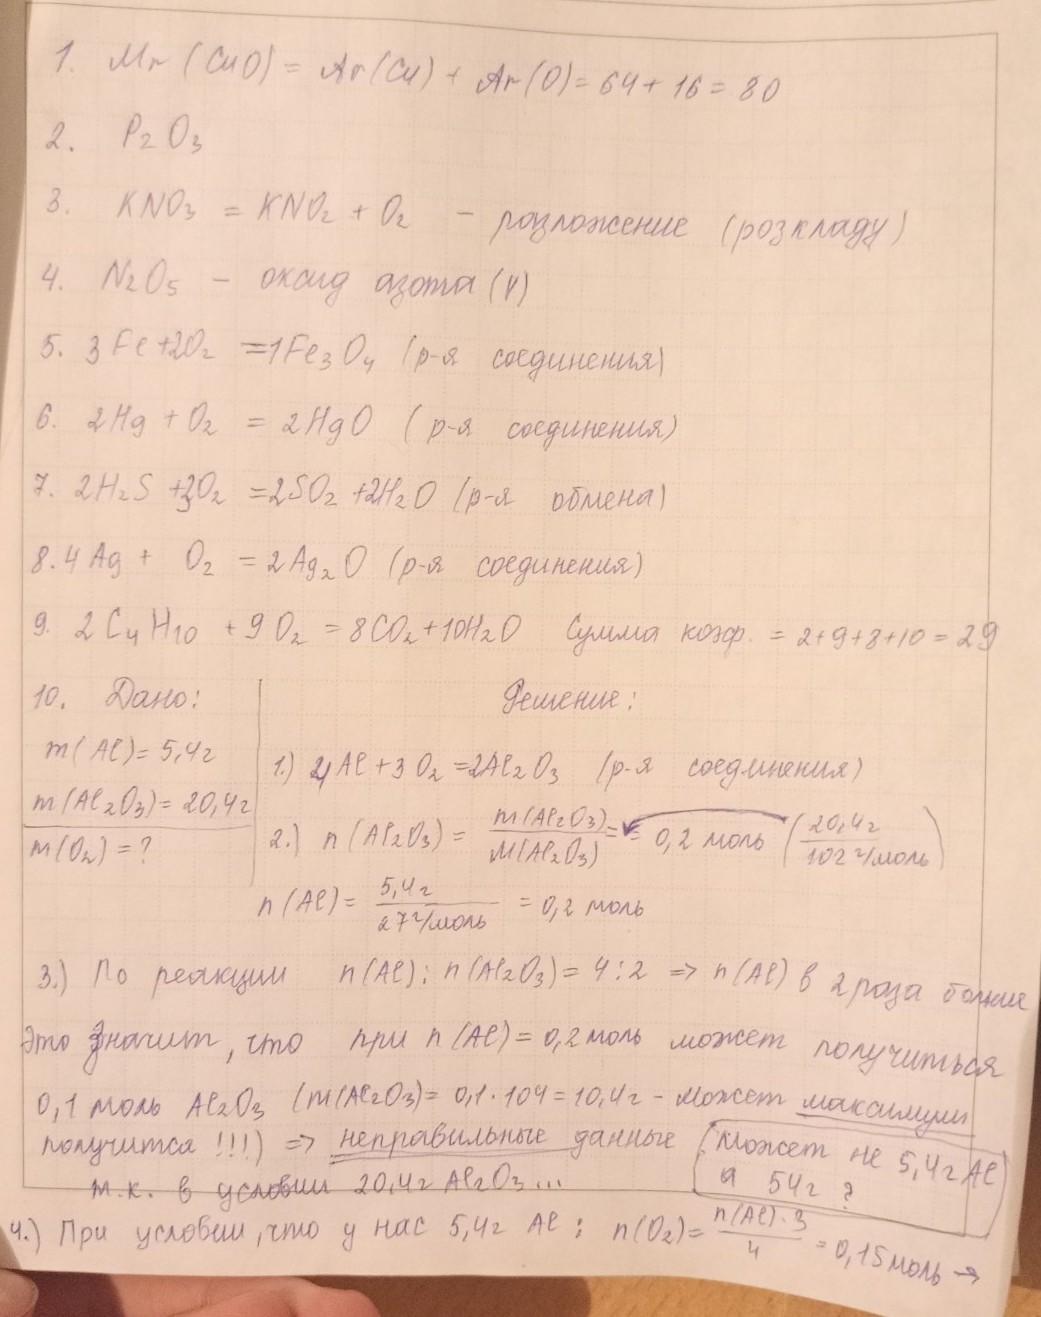 1. Mr (CuO) = Ar(Cu) + Ar(O) = 64 + 16 = 80
2. P₂O₃
3. KNO₃ = KNO₂ + O₂ - разложение (розкладу)
4. N₂O₅ - оксид азота (V)
5. 3Fe+2O₂ =1Fe₃O₄ (р-я соединения)
6. 2Hg + O₂ = 2HgO (р-я соединения)
7. 2H₂S +3O₂ =2SO₂ +2H₂O (р-я обмена)
8. 4Ag + O₂ = 2Ag₂O (р-я соединения)
9. 2C₄H₁₀ + 9O₂ = 8CO₂+10H₂O Сумма коэф. = 2+9+8+10 = 29
10. Дано: Решение:
m(Al)= 5,4г
1.) 4Al+3O₂ =2Al₂O₃ (р-я соединения)
m(Al₂O₃)= 20,4г
m(O₂) = ?
2.) n(Al₂O₃) = m(Al₂O₃)/M(Al₂O₃) = = 0,2 моль (20,4г/102г/моль)
n(Al) = 5,4г/27г/моль = 0,2 моль
3.) По реакции n(Al) : n(Al₂O₃) = 4:2 => n(Al) в 2 раза больше
Это значит, что при n(Al) = 0,2 моль может получиться
0,1 моль Al₂O₃ (m(Al₂O₃)= 0,1·104 = 10,4г - может максимум
получится !!!) => неправильные данные (Может не 5,4г Al
а 54г ?
т.к. в условии 20,4г Al₂O₃...
4.) При условии, что у нас 5,4г Al : n(O₂)= n(Al)·3/4 = 0,15моль →